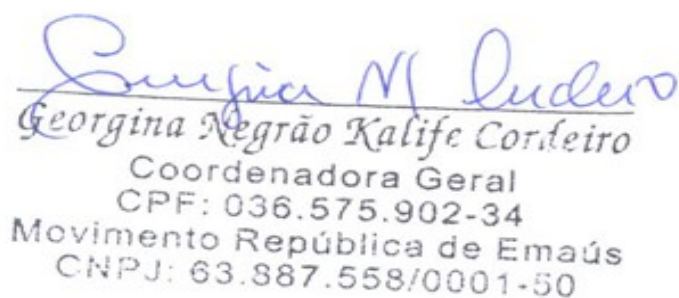 Georgina N Cordeiro
Georgina Negrão Kalife Cordeiro
Coordenadora Geral
CPF: 036.575.902-34
Movimento República de Emaús
CNPJ: 63.887.558/0001-50